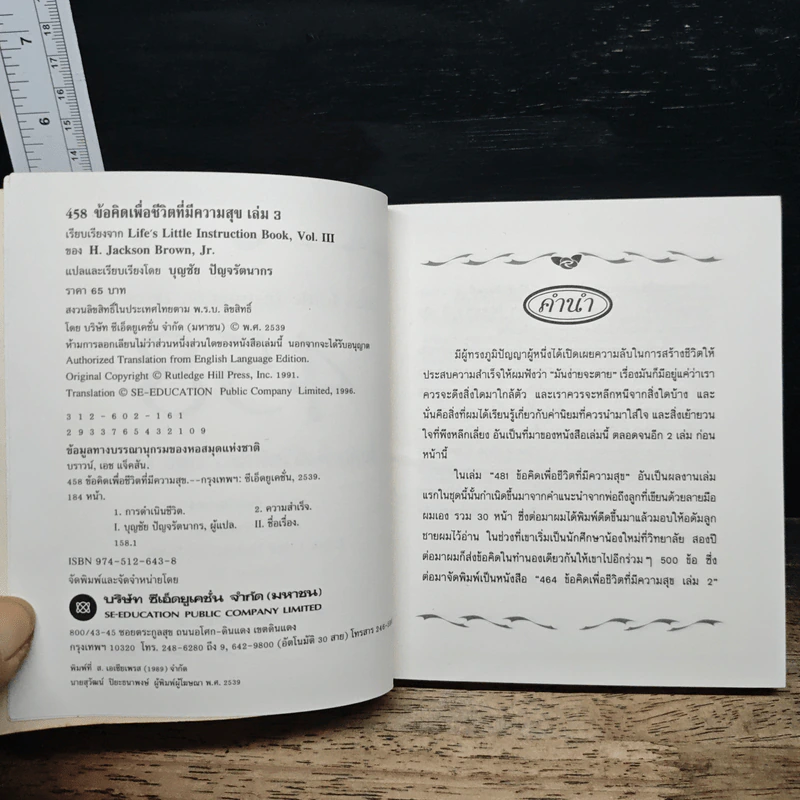 7
6
18
17
16
15
14
458 ข้อคิดเพื่อชีวิตที่มีความสุข เล่ม 3
เรียบเรียงจาก Life's Little Instruction Book, Vol. III
ของ H. Jackson Brown, Jr.
แปลและเรียบเรียงโดย บุญชัย ปัญจรัตนากร
ราคา 65 บาท
สงวนลิขสิทธิ์ในประเทศไทยตาม พ.ร.บ. ลิขสิทธิ์
โดย บริษัท ซีเอ็ดยูเคชั่น จำกัด (มหาชน) © พ.ศ. 2539
ห้ามการลอกเลียนไม่ว่าส่วนหนึ่งส่วนใดของหนังสือเล่มนี้ นอกจากจะได้รับอนุญาต
Authorized Translation from English Language Edition.
Original Copyright © Rutledge Hill Press, Inc. 1991.
Translation © SE-EDUCATION Public Company Limited, 1996.
3 1 2 - 6 0 2 - 1 6 1
2 9 3 3 7 6 5 4 3 2 1 0 9
ข้อมูลทางบรรณานุกรมของหอสมุดแห่งชาติ
บราวน์, เอช แจ็คสัน.
458 ข้อคิดเพื่อชีวิตที่มีความสุข.--กรุงเทพฯ: ซีเอ็ดยูเคชั่น, 2539.
184 หน้า.
1. การดำเนินชีวิต. 2. ความสำเร็จ.
I. บุญชัย ปัญจรัตนากร, ผู้แปล. II. ชื่อเรื่อง.
158.1
ISBN 974-512-643-8
จัดพิมพ์และจัดจำหน่ายโดย
บริษัท ซีเอ็ดยูเคชั่น จำกัด (มหาชน)
SE-EDUCATION PUBLIC COMPANY LIMITED
800/43-45 ซอยตระกูลสุข ถนนอโศก-ดินแดง เขตดินแดง
กรุงเทพฯ 10320 โทร. 248-6280 ถึง 9, 642-9800 (อัตโนมัติ 30 สาย) โทรสาร
พิมพ์ที่ ส. เอเซียเพรส (1989) จำกัด
นายสุวัฒน์ ปิยะธนาพงษ์ ผู้พิมพ์ผู้โฆษณา พ.ศ. 2539
คำนำ
มีผู้ทรงภูมิปัญญาผู้หนึ่งได้เปิดเผยความลับในการสร้างชีวิตให้
ประสบความสำเร็จให้ผมฟังว่า "มันง่ายจะตาย" เรื่องมันก็มีอยู่แค่ว่าเรา
ควรจะดึงสิ่งใดมาใกล้ตัว และเราควรจะหลีกหนีจากสิ่งใดบ้าง และ
นั่นคือสิ่งที่ผมได้เรียนรู้เกี่ยวกับค่านิยมที่ควรนำมาใส่ใจ และสิ่งเย้ายวน
ใจที่พึงหลีกเลี่ยง อันเป็นที่มาของหนังสือเล่มนี้ ตลอดจนอีก 2 เล่ม ก่อน
หน้านี้
ในเล่ม "481 ข้อคิดเพื่อชีวิตที่มีความสุข" อันเป็นผลงานเล่ม
แรกในชุดนี้นั้นกำเนิดขึ้นมาจากคำแนะนำจากพ่อถึงลูกที่เขียนด้วยลายมือ
ผมเอง รวม 30 หน้า ซึ่งต่อมาผมได้พิมพ์ดีดขึ้นมาแล้วมอบให้อดัมลูก
ชายผมไว้อ่าน ในช่วงที่เขาเริ่มเป็นนักศึกษาน้องใหม่ที่วิทยาลัย สองปี
ต่อมาผมก็ส่งข้อคิดในทำนองเดียวกันให้เขาไปอีกร่วมๆ 500 ข้อ ซึ่ง
ต่อมาจัดพิมพ์เป็นหนังสือ "464 ข้อคิดเพื่อชีวิตที่มีความสุข เล่ม 2"